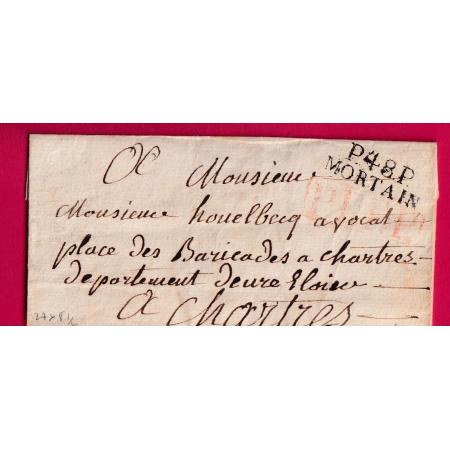 P48P
MORTAIN
A Monsieur
Monsieur houelbecq avocat
place des Baricades a chartres
departement deure Eloire
A chartres